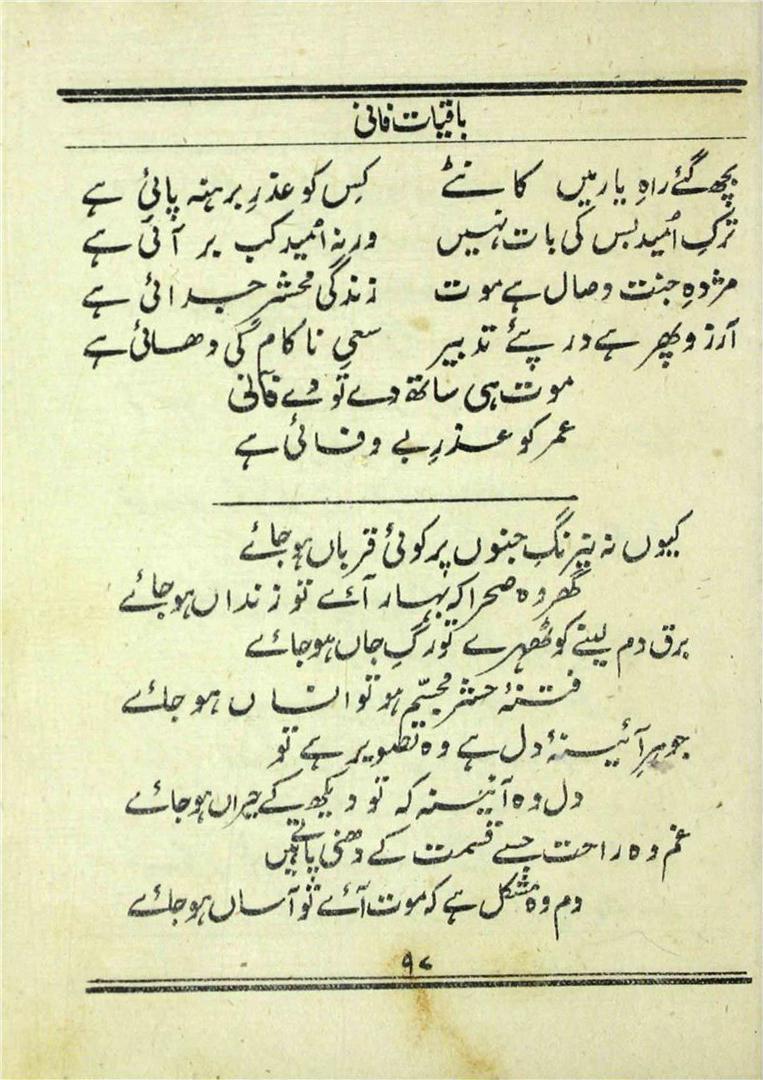 باقیات فانی
بچھ گئے راہِ یار میں کانٹے کِس کو عذرِ برہنہ پائی ہے
ترکِ اُمید بس کی بات نہیں ورنہ اُمید کب بر آئی ہے
مژدہِ جنت وصال ہے موت زندگی محشرِ جدائی ہے
آرزو پھر ہے درپئے تدبیر سعیِ ناکام کی دھائی ہے
موت ہی ساتھ دے تو دے فانی
عمر کو عذرِ بے وفائی ہے
کیوں نہ نیرنگِ جنوں پر کوئی قرباں ہوجائے
گھر وہ صحرا کہ بہار آئے تو زنداں ہوجائے
برق دم لینے کو ٹھہرے تو رگِ جاں ہوجائے
فتنۂ حشر مجسّم ہو تو انساں ہوجائے
جوہرِ آئینۂ دل ہے وہ تصویر ہے تو
دل وہ آئینہ کہ تو دیکھ کے حیراں ہوجائے
غم وہ راحت جسے قسمت کے دھنی پاتے ہیں
دم وہ مشکل ہے کہ موت آئے تو آساں ہوجائے
۹۷